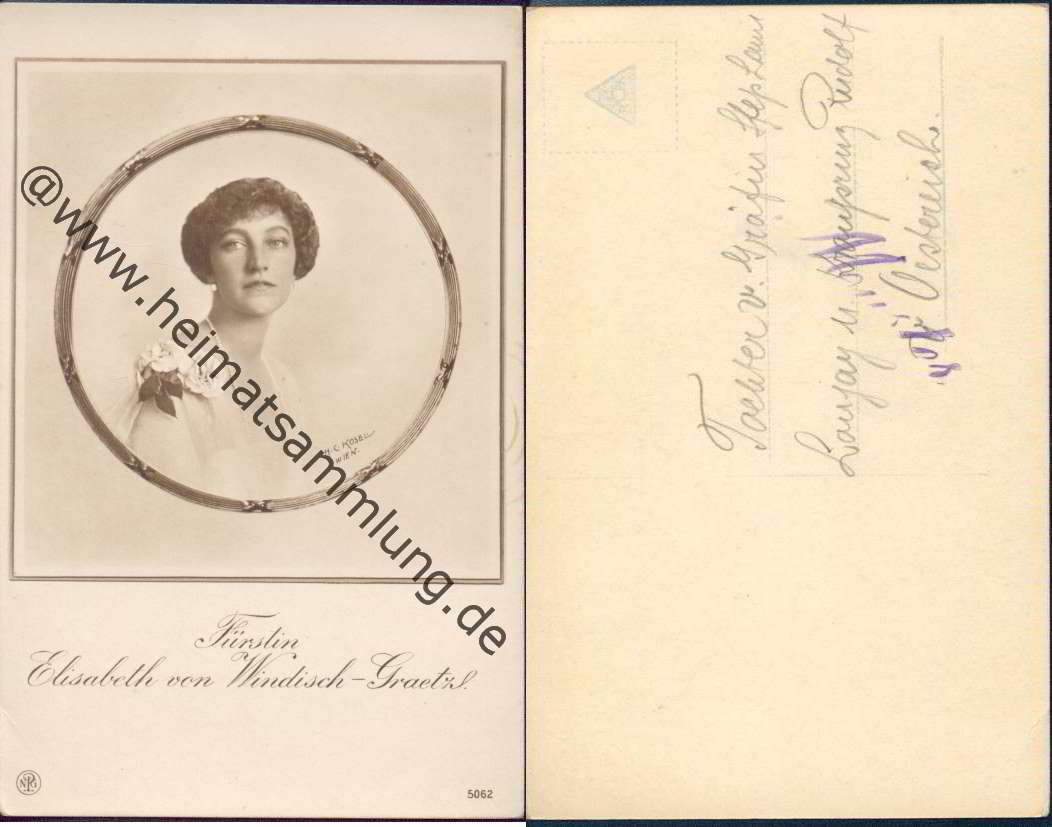 @www.heimatsammlung.de
H. C. KOSEL
WIEN.
Fürstin
Elisabeth von Windisch-Graetz.
NPG
5062
Tochter v. Gräfin Stephanie
Lonyay u. Kronprinz Rudolf
v. Oesterreich.